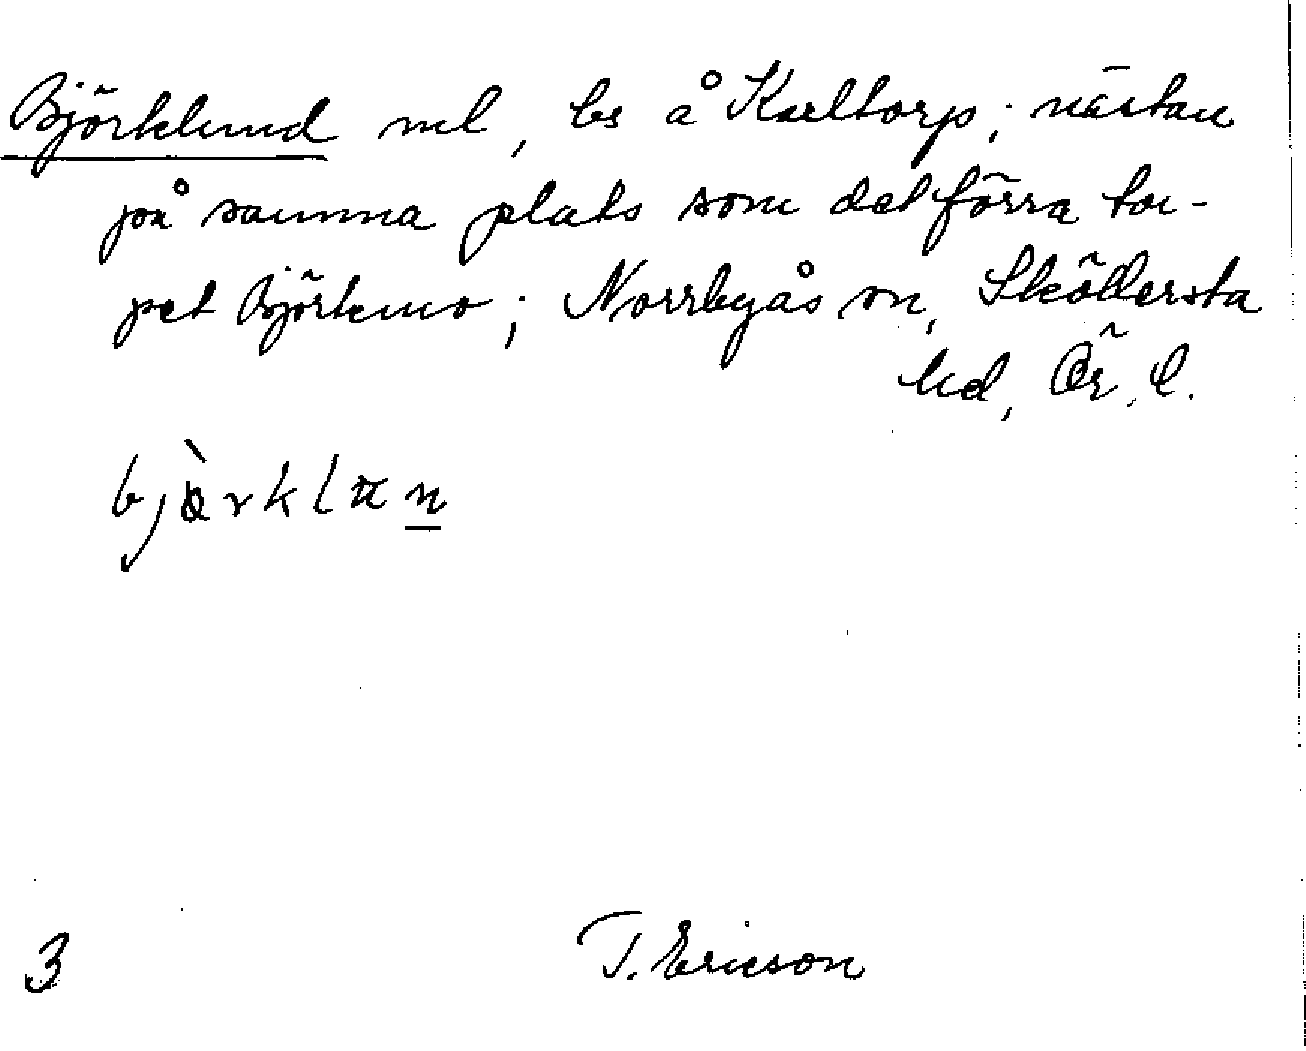 Björklund nel, bs å Karltorp; nästan
på samma plats som det förra tor-
pet Björkmo; Norrbyås sn, Sköllersta
hd, Ör. l.
bjö̀rklun
3 T. Ericson